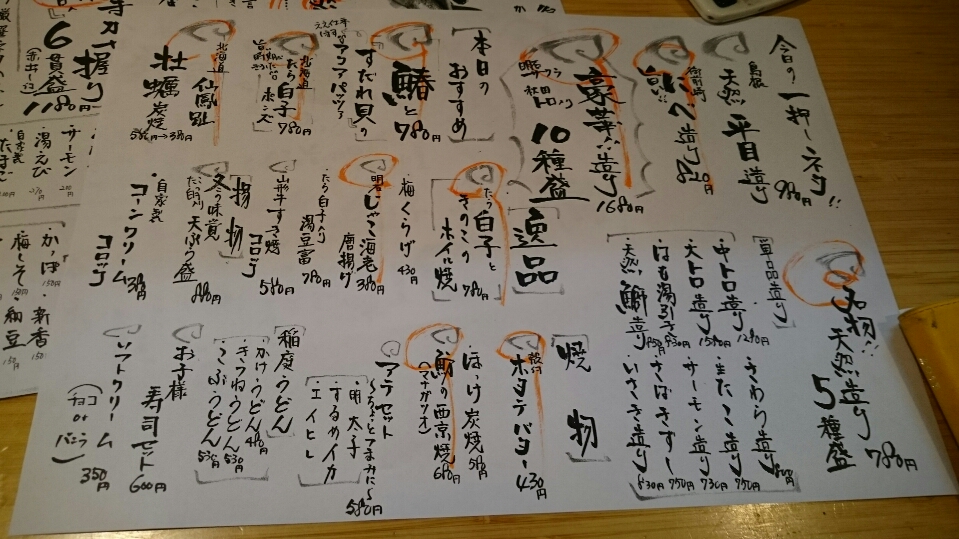 今日の一押しネタ!!
島根
天然 平目 造り
980円
旨い!!
にべ 造り
豪華!!造り
10種盛
1680円
名物!!
天然造り
5種盛
780円
[単品造り]
・中トロ造り 1280円
・大トロ造り 1580円
・はも湯引き 930円
・天然 鰤造り 930円
・さわら造り
・生たこ造り 750円
・サーモン造り 730円
・きずし 750円
・いさき造り 830円
[本日のおすすめ]
鰆と
すだれ貝の
アクアパッツァ
780円
北海道
たら白子
ポン酢
780円
北海道
仙鳳趾
牡蠣 炭焼
580円→380円
[逸品]
たら白子と
きのこの
ホイル焼
780円
梅くらげ
430円
じゃこ海老
唐揚げ
380円
たら白子入り
湯豆富
780円
山形牛すき焼
コロッケ
580円
[揚物]
冬の味覚
天ぷら盛
880円
自家製
コーンクリーム
コロッケ
380円
[焼物]
殻付
ホタテバター
430円
ほっけ炭焼
580円
西京焼
(マナガツオ)
680円
アテセット
・明太子
・するめイカ
・エイヒレ
580円
[稲庭うどん]
・かけうどん 480円
・きつねうどん 530円
・こぶうどん 530円
お子様
寿司セット
600円
ソフトクリーム
(チョコ or バニラ)
350円
握り
6貫盛
(赤出し付)
1180円
・サーモン
・湯えび
・かっぱ 150円
・新香 150円
・梅しそ 150円
・納豆 150円